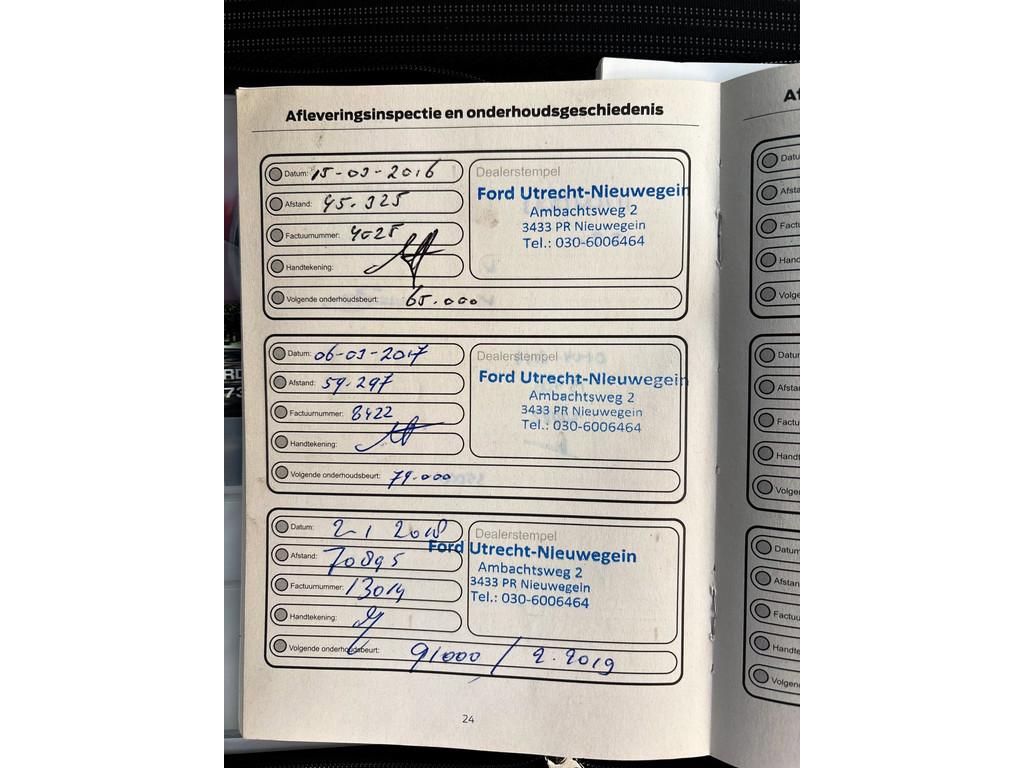 Afleveringsinspectie en onderhoudsgeschiedenis
Datum: 15-03-2016
Afstand: 45.325
Factuurnummer: 4025
Handtekening:
Volgende onderhoudsbeurt: 65.000
Dealerstempel
Ford Utrecht-Nieuwegein
Ambachtsweg 2
3433 PR Nieuwegein
Tel.: 030-6006464
Datum: 06-03-2017
Afstand: 59.297
Factuurnummer: 8422
Handtekening:
Volgende onderhoudsbeurt: 79.000
Dealerstempel
Ford Utrecht-Nieuwegein
Ambachtsweg 2
3433 PR Nieuwegein
Tel.: 030-6006464
Datum: 2-1 2018
Afstand: 70895
Factuurnummer: 13014
Handtekening:
Volgende onderhoudsbeurt: 91000 / 2.2019
Dealerstempel
Ford Utrecht-Nieuwegein
Ambachtsweg 2
3433 PR Nieuwegein
Tel.: 030-6006464
24
Af
Datu
Afsta
Factu
Hand
Volge
Datur
Afsta
Factu
Handt
Volge
Datum
Afstan
Factuu
Handte
Volgen